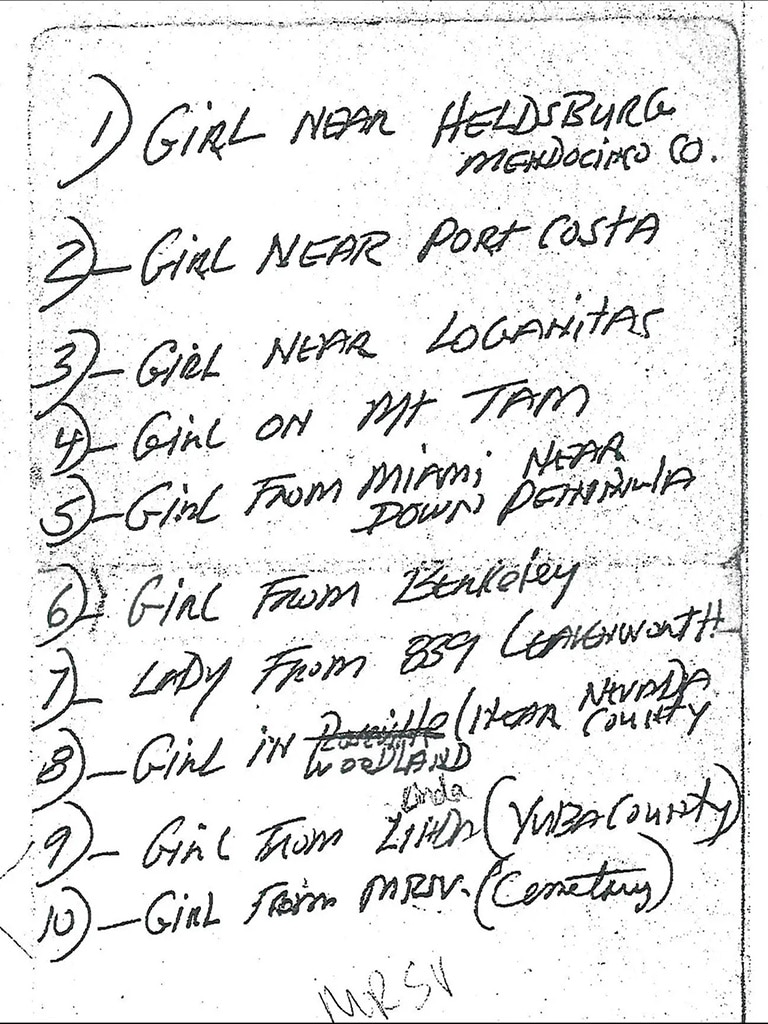 1) GIRL NEAR HELDSBURG
MENDOCINO CO.
2) — GIRL NEAR PORT COSTA
3) — GIRL NEAR LOGANITAS
4) — GIRL ON Mt TAM
5) — GIRL FROM MIAMI NEAR
DOWN PENINULA
6) — GIRL FROM Berkeley
7) — LADY FROM 839 LEAVENWORTH
8) — GIRL IN (NEAR NEVADA
COUNTY
WOODLAND
Linda
9) — GIRL FROM LINDA (YUBA COUNTY)
10) — GIRL FROM MRSV. (Cemetery)
MRSV